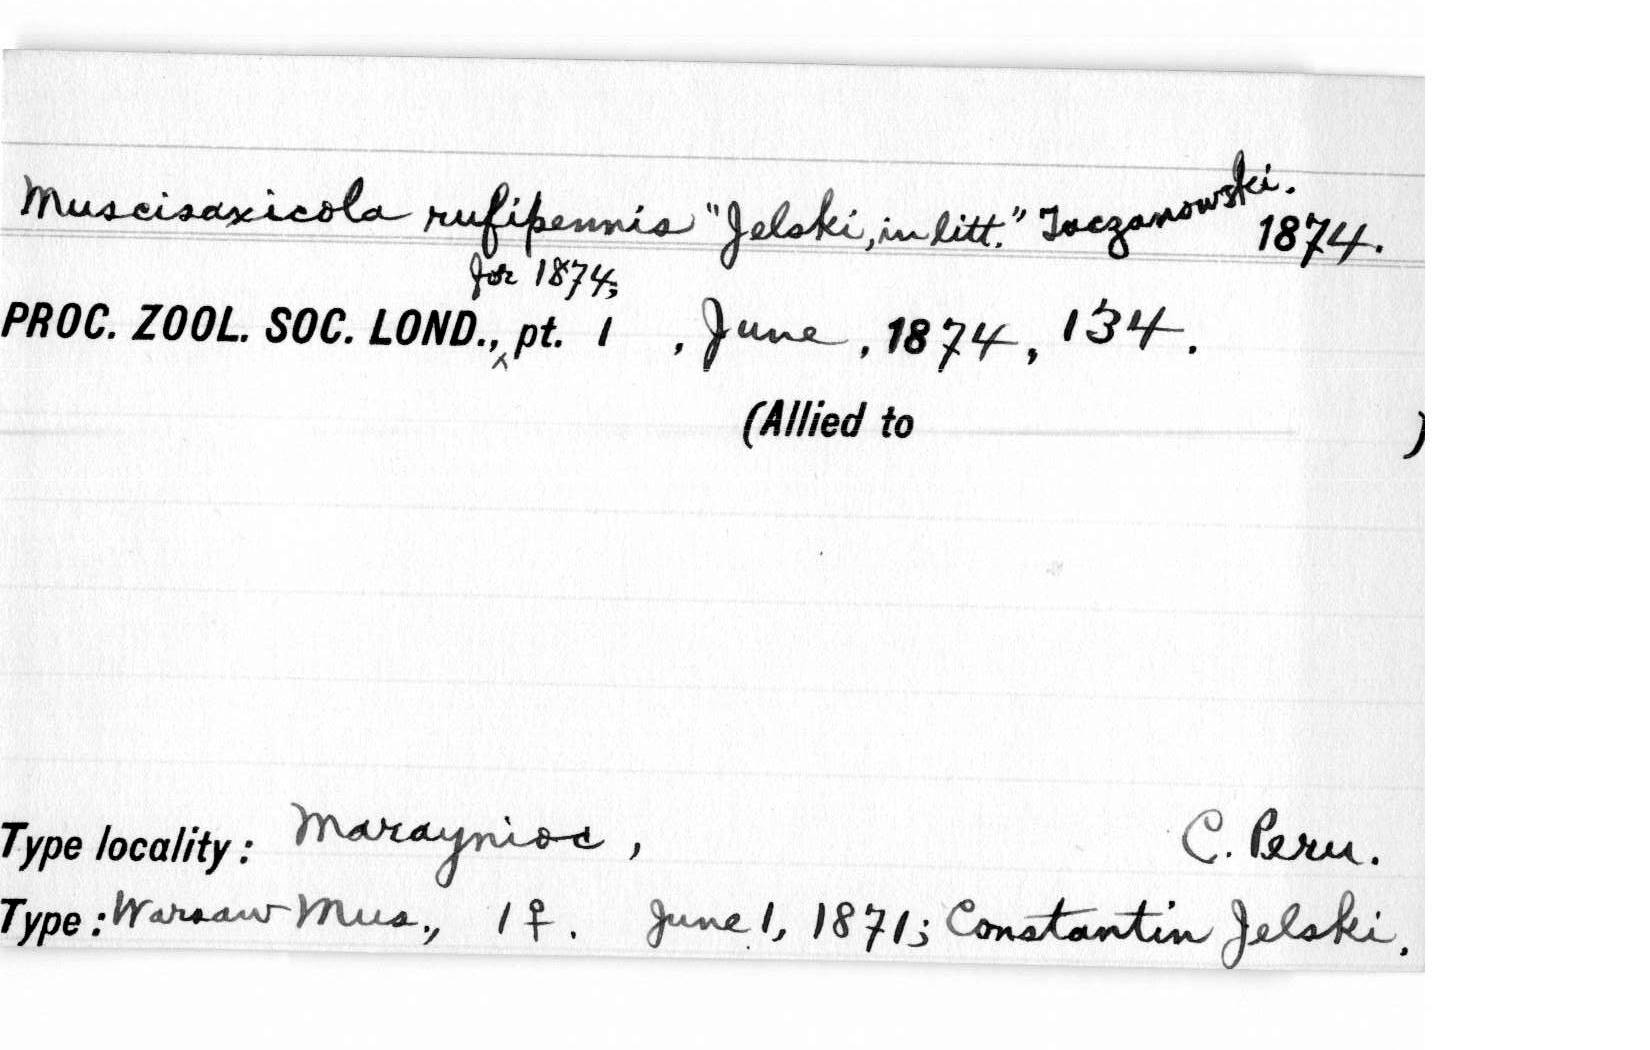 Muscisaxicola rufipennis "Jelski, in litt." Taczanowski.
1874.
for 1874;
PROC. ZOOL. SOC. LOND.,^ pt. 1 , June , 1874, 134.
(Allied to )
Type locality: Maraynioc, C. Peru.
Type: Warsaw Mus., 1♀. June 1, 1871; Constantin Jelski.